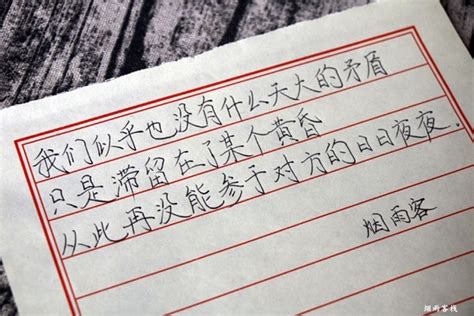 我们似乎也没有什么天大的矛盾
只是滞留在了某个黄昏
从此再没能参于对方的日日夜夜.
烟雨客
烟雨客栈